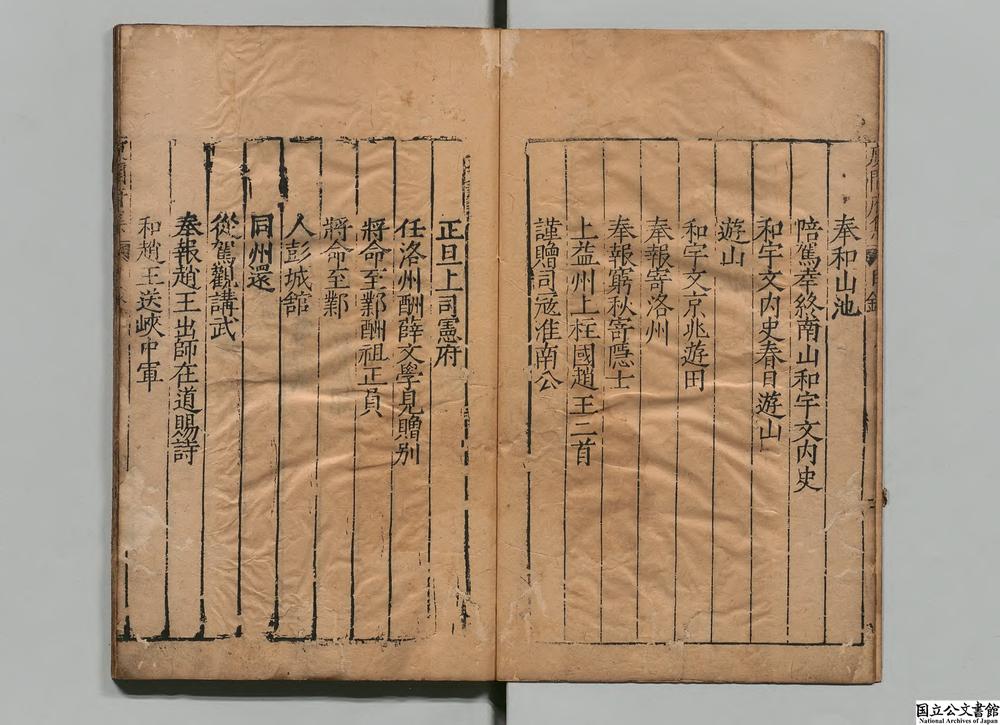 奉和山池
陪駕幸終南山和宇文内史
和宇文内史春日遊山
遊山
和宇文京兆遊田
奉報寄洛州
奉報窮秋寄隱士
上益州上柱國趙王二首
謹贈司寇淮南公
正旦上司憲府
任洛州酬薛文學見贈别
將命至鄴酬祖正員
將命至鄴
入彭城舘
同州還
從駕觀講武
奉報趙王出師在道賜詩
和趙王送峽中軍
国立公文書館
National Archives of Japan